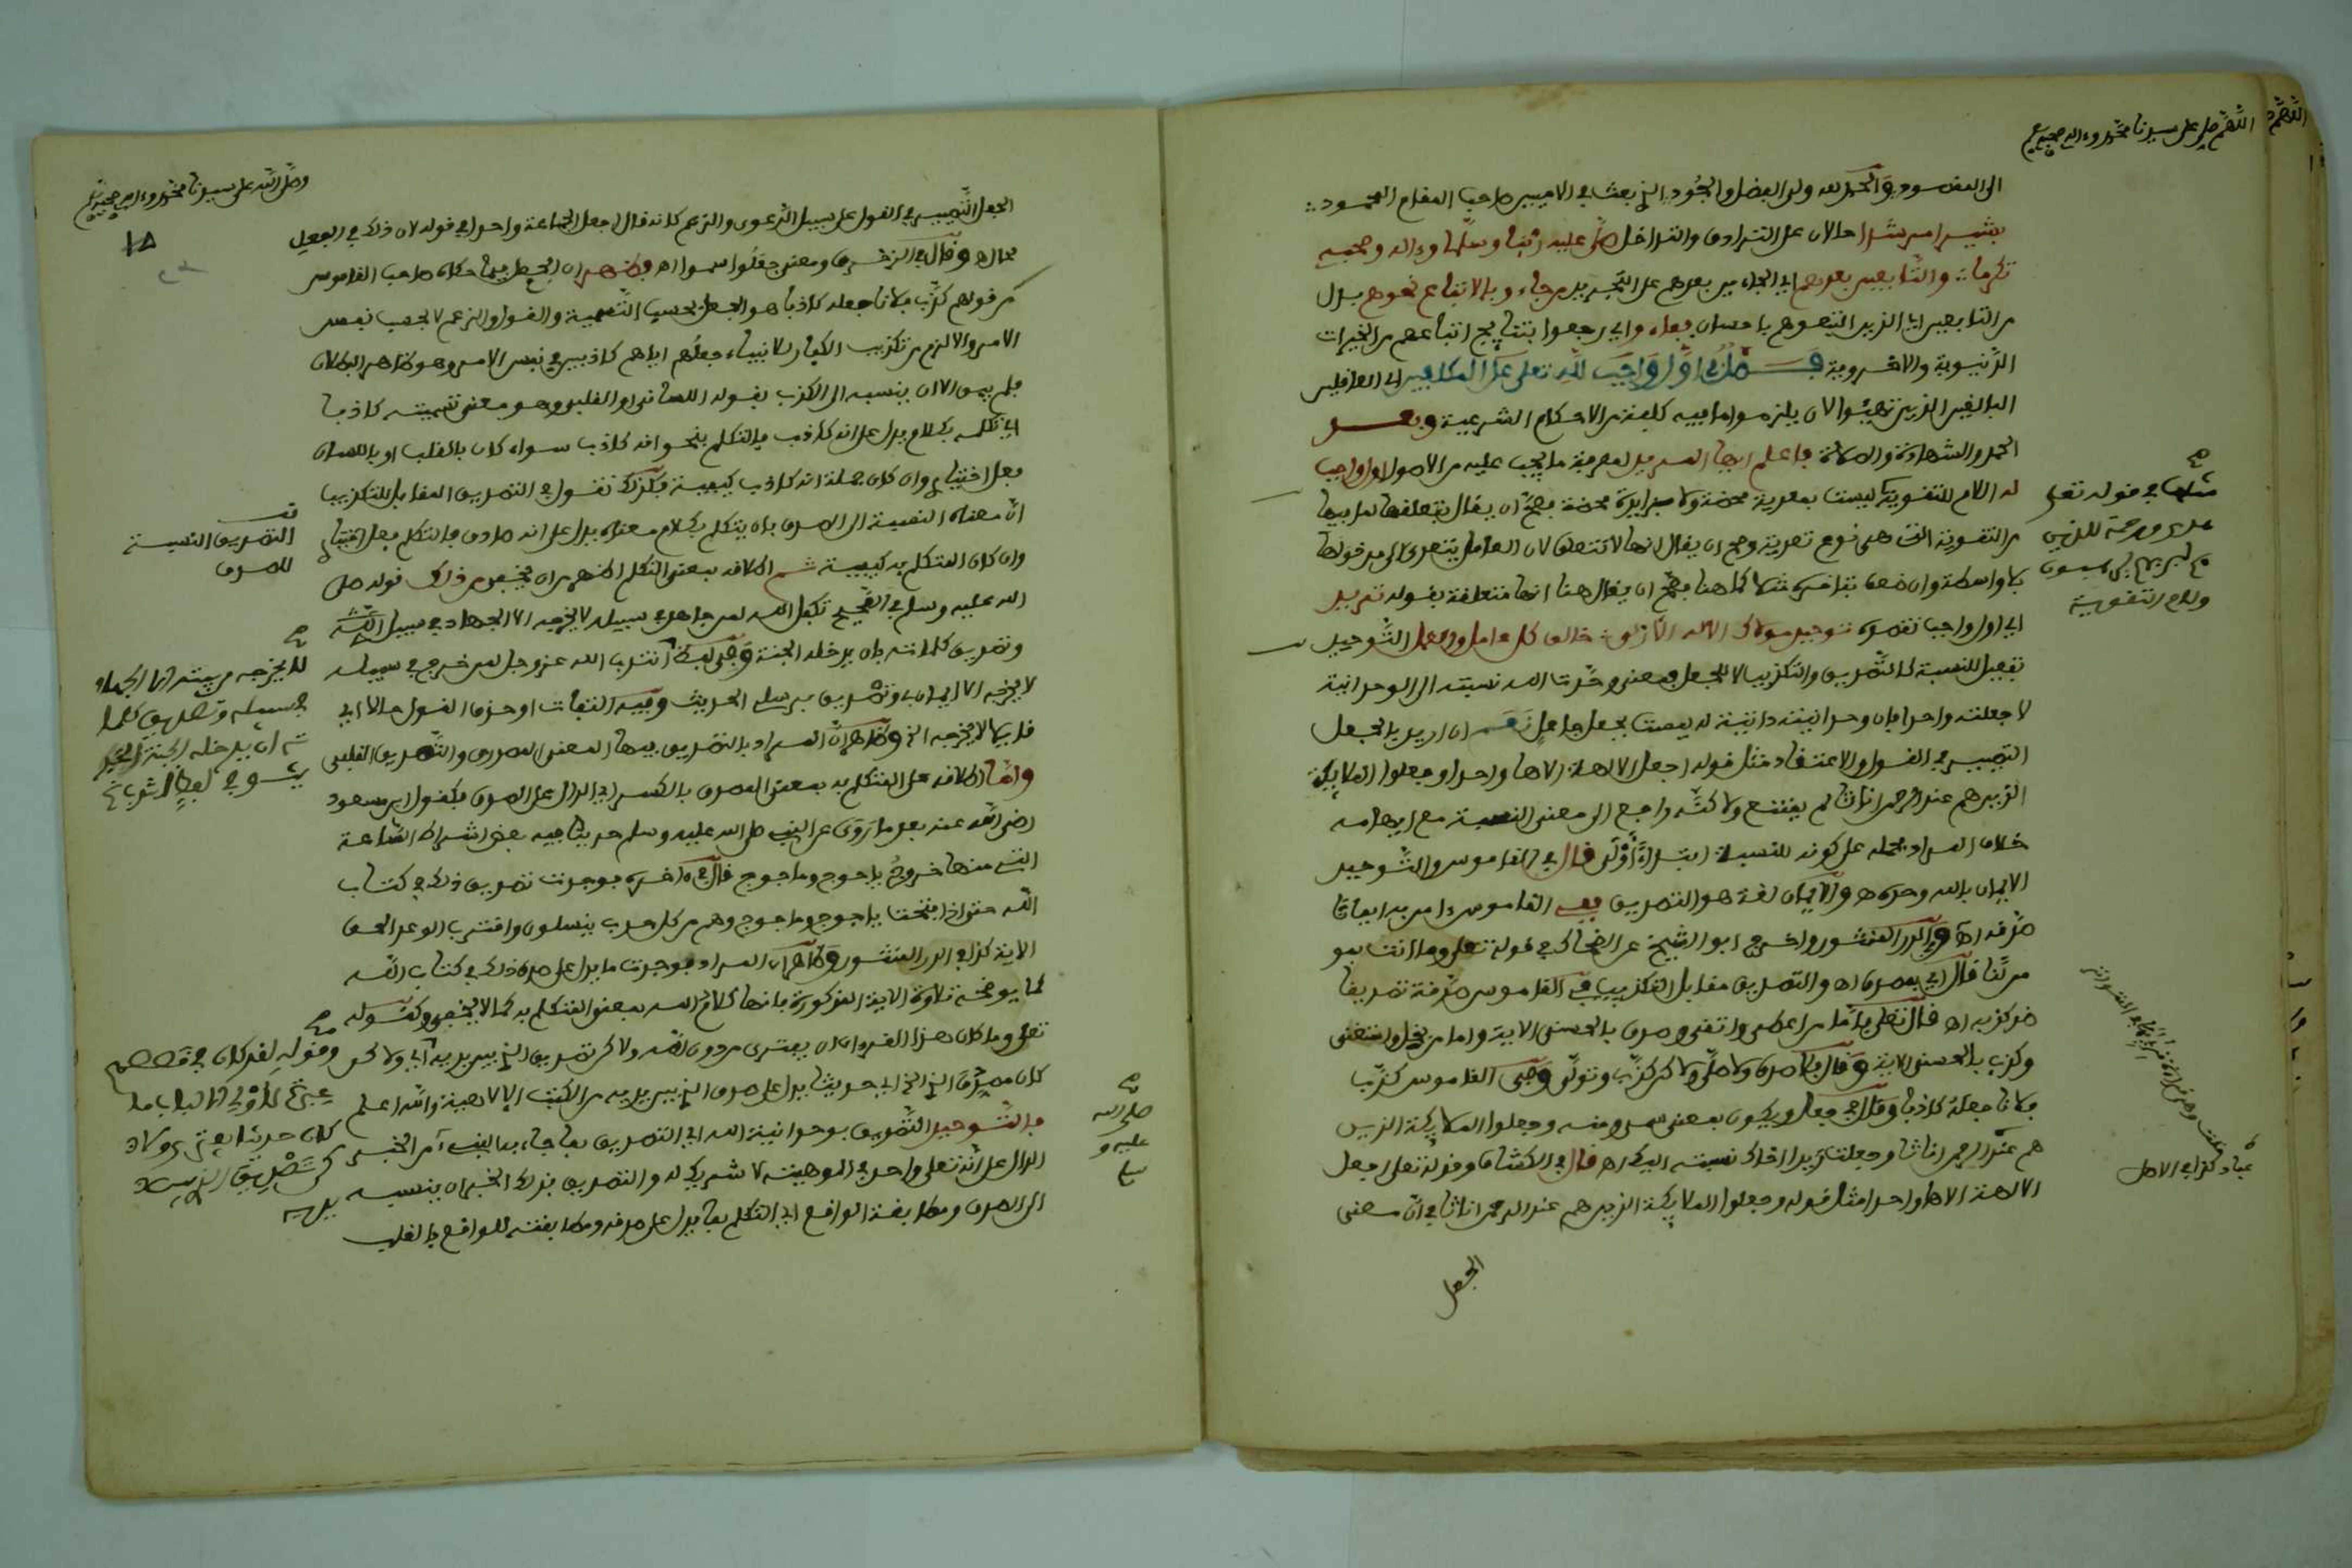 اللهم صل على سيدنا محمد وءاله وصحبه
الى المقصود والحمد لله ولى الفضل والجود الذي بعث في الاميين صاحب المقام المحمود
بشيرا صلى عليه ربنا وسلما وءاله وصحبه
تكرما والتابعين بعدهم اي الجاءين بعدهم على التجريد من جاء وبالاتباع نحوهم بدل
من التابعين اي الذين اتبعوهم باحسان رجعوا بنتايج اتباعهم من الخيرات
الدنيوية والاخروية فصل في اول واجب لله تعلى على المكلفين اي العاقلين
البالغين الذين تهيئوا لان يلزموا ما فيه كلفة من الاحكام الشرعية وبعد
الحمد والشهادة والصلاة فاعلم ايها المريد لمعرفة ما يجب عليه من الاصول اول واجب
له اللام للتقوية ليست بمعدية محضة ولا بزايدة محضة فصح ان يقال بتعلقها لما فيها
من التقوية التي هي نوع تعدية وصح ان يقال انها لا تتعلق لان العامل يتعدى الى مدخولها
بلا واسطة وان ضعف بتاخره مثلا كما هنا فصح ان يقال هنا انها متعلقة بقوله تفريد
اي اول واجب تقصده توحيد مولاك الاله الازلي خالق كل عامل والعمل التوحيد
تفعيل للنسبة كالتصديق والتكذيب لا للجعل فمعنى وحدت الله نسبته الى الوحدانية
لا جعلته واحدا فان وحدانيته ذاتية له ليست بجعل جاعل نعم ان اريد بالجعل
التصيير في القول والاعتقاد مثل قوله اجعل الالهة الاها واحدا وجعلوا الملايكة
الذين هم عند الرحمن اناثا لم يمتنع ولاكنه راجع الى معنى النسبة مع ايهامه
خلاف المراد فحمله على كونه للنسبة ابتداء اولى قال في القاموس والتوحيد
الايمان بالله وحده اه والايمان لغة هو التصديق ففي القاموس ءامن به ايمانا
صدقه اه وفي الدر المنثور واخرج ابو الشيخ عن الضحاك في قوله تعلى وما انت بمو
من لنا قال اي بمصدق اه والتصديق مقابل التكذيب في القاموس صدقه تصديقا
ضد كذبه اه قال تعلى فاما من اعطى واتقى وصدق بالحسنى الاية واما من بخل واستغنى
وكذب بالحسنى الاية وقال فلا صدق ولا صلى ولاكن كذب وتولى وفي القاموس كذب
فلانا جعله كاذبا وقال في جعل ويكون بمعنى سمى ومنه وجعلوا الملايكة الذين
هم عند الرحمن اناثا وجعلت زيدا اخاك نسبته اليك اه قال في الكشاف وقوله تعلى اجعل
الالهة الاها واحدا مثل قوله وجعلوا الملايكة الذين هم عند الرحمن اناثا في ان معنى
الجعل
مثلها في قوله تعلى
هدى ورحمة للذين
هم لربهم يرهبون
ولام التقوية
وصلى الله على سيدنا محمد وءاله وصحبه
١٨
الجعل التصيير في القول على سبيل الدعوى والزعم كانه قال اجعل الجماعة واحدا في قوله لان ذلك في الفعل
محال اه وقال الزمخشري ومعنى جعلوا سموا اه فظهر ان الجعل فيما حكاه صاحب القاموس
من قولهم كذب فلانا جعله كاذبا هو الجعل بحسب التسمية والقول والزعم لا بحسب نفس
الامر والا لزم من تكذيب الكفار للانبياء جعلهم اياهم كاذبين في نفس الامر وهو ظاهر البطلان
فلم يبق الا ان ينسبه الى الكذب بقوله اللساني او القلبي وهو معنى تسميته كاذبا
اي تكلمه بكلام يدل على انه كاذب فالتكلم بنحو انه كاذب سواء كان بالقلب او باللسان
فعل اختياري وان كان جملة انه كاذب كيفية فكذلك نقول في التصديق المقابل للتكذيب
ان معناه النسبة الى الصدق بان يتكلم بكلام معناه يدل على انه صادق فالتكلم فعل اختياري
وان كان المتكلم به كيفية ثم اطلاقه بمعنى التكلم اظهر من ان يخفى ومن ذلك قوله صلى
الله عليه وسلم في الصحيح تكفل الله لمن جاهد في سبيله لا يخرجه الا الجهاد في سبيل الله
وتصديق كلماته بان يدخله الجنة وفي لفظ انتدب الله عز وجل لمن خرج في سبيله
لا يخرجه الا ايمان بي وتصديق برسلي الحديث وفيه التفات او حذف القول حالا اي
قايلا لا يخرجه الخ وظاهر ان المراد بالتصديق فيها المعنى المصدري والتصديق القلبي
واما اطلاقه على المتكلم به بمعنى المصدق بالكسر اي الدال على الصدق فكقول ابن مسعود
رضي الله عنه بعد ما روى عن النبي صلى الله عليه وسلم حديثا فيه بعض اشراط الساعة
التي منها خروج ياجوج وماجوج قال في ءاخره فوجدت تصديق ذلك في كتاب
الله حتى اذا فتحت ياجوج وماجوج وهم من كل حدب ينسلون واقترب الوعد الحق
الاية كذا في الدر المنثور وظاهر ان المراد فوجدت ما يدل على صدق ذلك في كتاب الله
كما يوضحه تلاوة الاية المذكورة فانها كلام الله بمعنى المتكلم به كما لا يخفى وكقوله
تعلى وما كان هذا القرءان ان يفترى من دون الله ولاكن تصديق الذي بين يديه اي ولاكن
كان مصدق الذي الخ اي حديثا يدل على صدق الذي بين يديه من الكتب الالاهية والله اعلم
فالتوحيد التصديق بوحدانية الله اي التصديق بما جاء به النبي من الخبر
الدال على انه تعلى واحد في الوهيته لا شريك له والتصديق بذلك الخبر ان ينسبه
الى الصدق ومطابقة الواقع اي التكلم بما يدل على صدقه ومطابقته للواقع بالقلب
قف
التصديق النسبة
للصدق
لا يخرجه من بيته الا الجهاد
في سبيله وتصديق كلما
ته ان يدخله الجنة
وقوله لقد كان في قصصهم
عبرة لاولي الالباب ما
كان حديثا يفترى ولا
كن تصديق الذي بين
يديه
صلى الله
عليه و
سلم